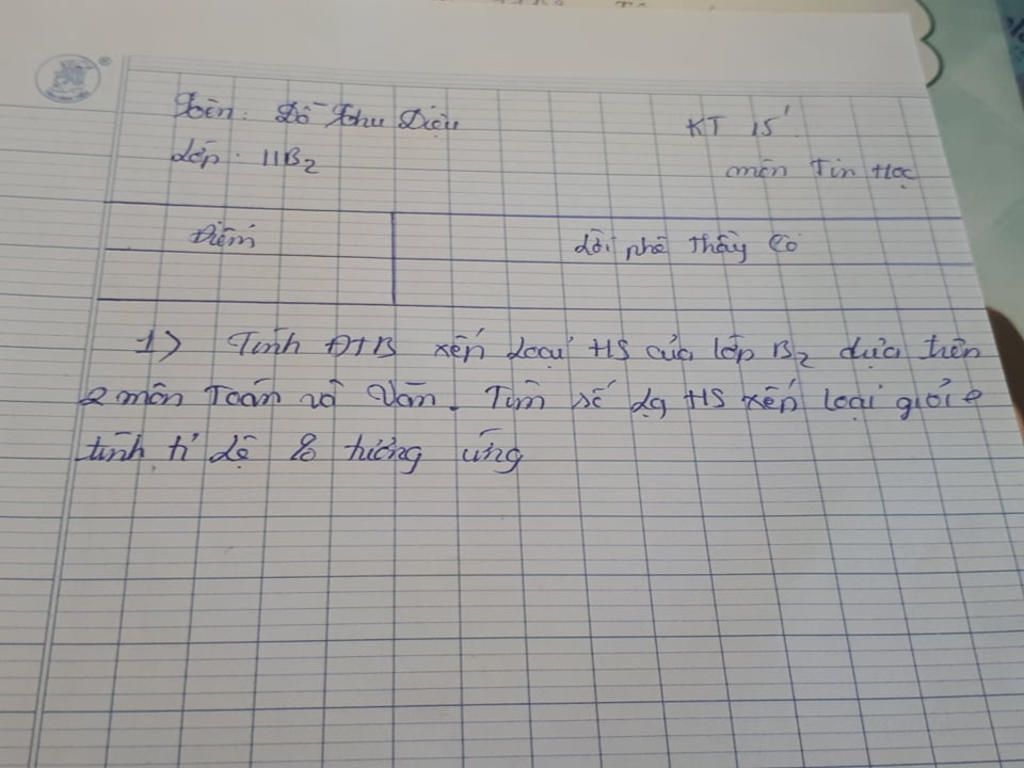 Tên: Đỗ Thu Diệu
KT 15'
Lớp: 11B2
môn Tin Học
Điểm
Lời phê Thầy Cô
1> Tính ĐTB xếp loại HS của lớp B2 dựa trên
2 môn Toán và Văn. Tìm số lg HS xếp loại giỏi e
tính tỉ lệ % tương ứng